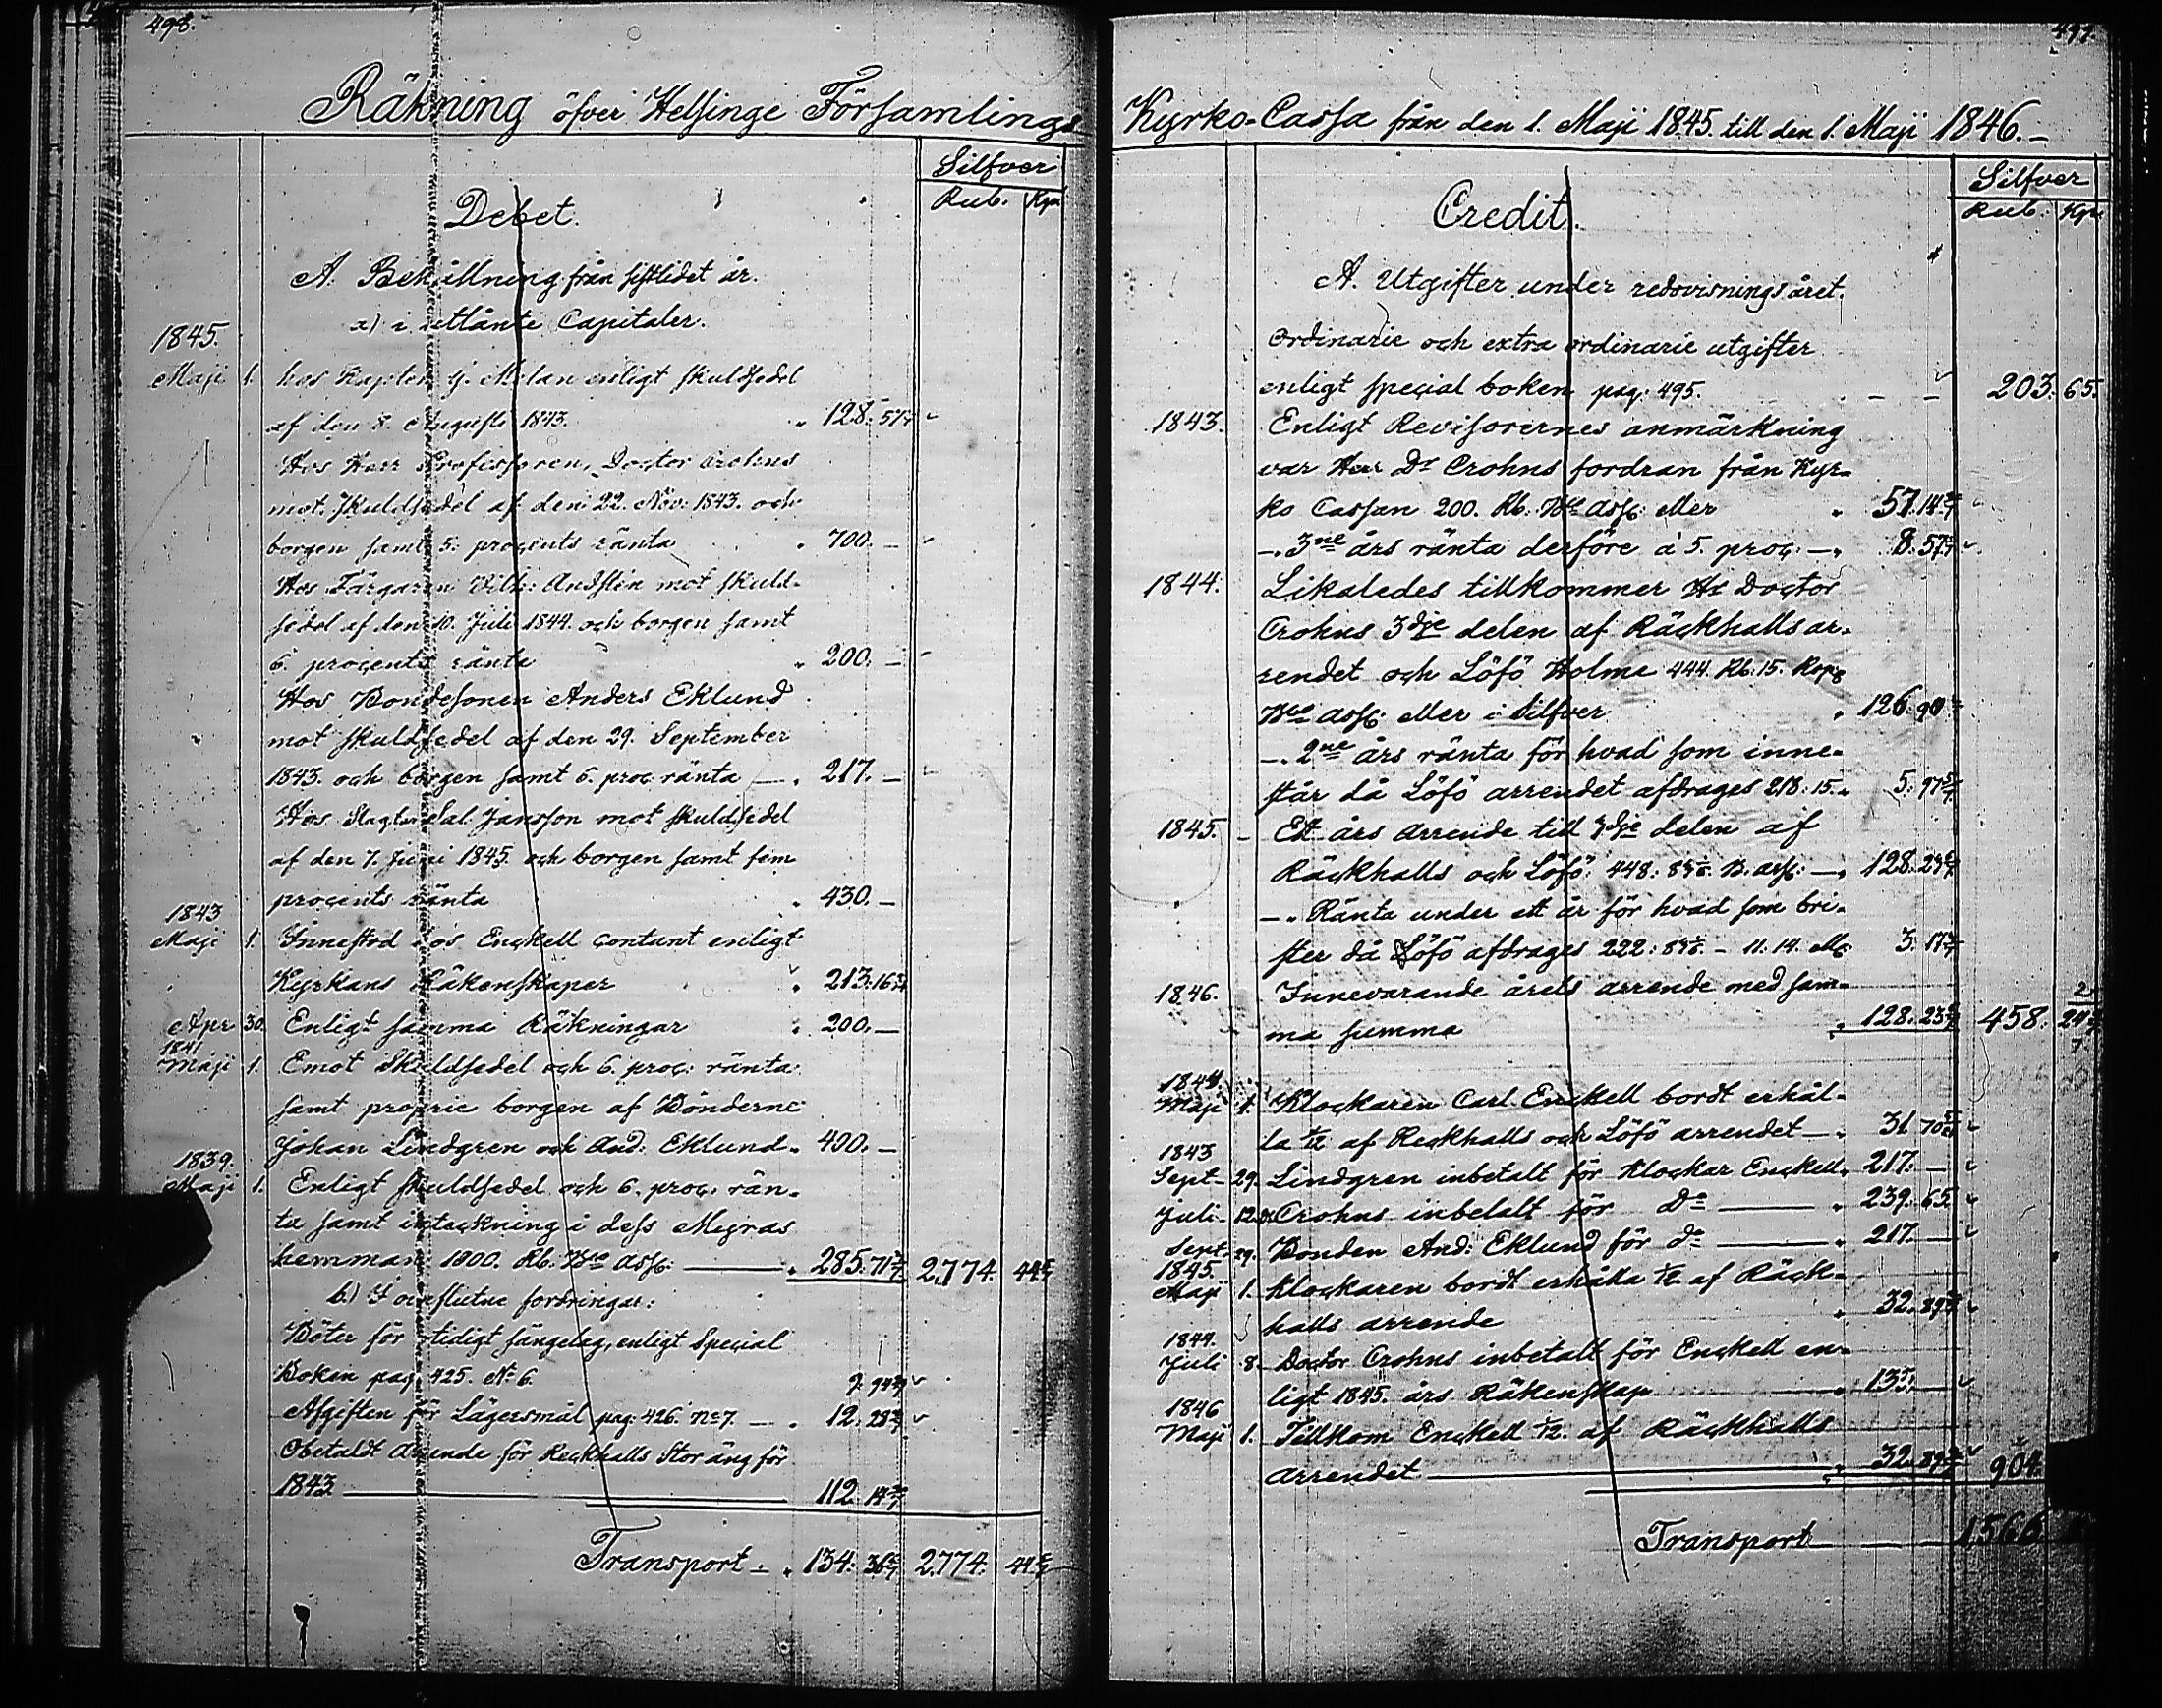 498.
Räkning öfver Helsinge Församlings
Silfver
Rub. Kpr
Debet.
A. Behållning från sistlidet år.
a) i utlånte Capitaler.
1845.
Maji 1. hos Kapten G. Melan enligt skuldsedel
af den 8. Augusti 1843. 128. 57 1/7
Hos Herr Professoren, Doctor Crohns
mot skuldsedel af den 22. Nov: 1843. och
borgen samt 5. procents ränta 700. —
Hos Färgaren Vilh: Andstén mot skuld-
sedel af den 10. Juli 1844. och borgen samt
6. procents ränta 200. —
Hos Bondesonen Anders Eklund
mot skuldsedel af den 29. September
1843. och borgen samt 6. proc. ränta — 217. —
Hos Slagtar Sal. Jansson mot skuldsedel
af den 7. Juni 1845. och borgen samt fem
procents ränta 430. —
1843
Maji 1. Innestod hos Enckell contant enligt
Kyrkans Räkenskaper 213. 16
Apr 30. Enligt samma Räkningar 200. —
1841
Maji 1. Emot Skuldsedel och 6. proc: ränta
samt proprie borgen af Bönderne
Johan Lindgren och And: Eklund 400. —
1839.
Maji 1. Enligt skuldsedel och 6. proc. rän-
ta samt inteckning i dess Megras
hemman 1000. Rb. Bco Ass: — 285. 71 3/7 2,774. 44
b.) I oueflutne fordringar:
Böter för otidigt sängelag, enligt Special
Boken pag. 425. No 6.
Afgiften för Lägersmål pag: 426. No 7. — 12. 28
Obetaldt Arrende för Reckhalls Storäng för
1843. — 112. 14
Transport — 134. 36 2774. 44
497.
Kyrko-Cassa från den 1. Maji 1845. till den 1. Maji 1846. —
Silfver
Rub. Kpr
Credit.
A. Utgifter under redovisningsåret.
Ordinarie och extra ordinarie utgifter
enligt special boken pag. 495. — — 203. 65.
1843. Enligt Revisorernes anmärkning
var Herr Dr Crohns fordran från Kyr-
ko Cassan 200. Rb. Bco Ass: eller 57. 14
—. 3ne års ränta derföre à 5. proc. — 8. 57
1844. Likaledes tillkommer Hr Doctor
Crohns 3dje delen af Räckhalls ar-
rendet och Löfö Holme 444. Rb. 15. Kop:
Bco ass: eller i Silfver 126. 90
—. 2ne års ränta för hvad som inne-
står då Löfö arrendet afdrages 218: 15. 5. 97
1845. — Ett års arrende till 3dje delen af
Räckhalls och Löfö: 448: B. ass: — 128. 23
—. Ränta under ett år för hvad som bri-
ster då Löfö afdrages 222: — 11. 14. 3. 17
1846. Innevarande årets arrende med sam-
ma summa 128. 23 458. 24
1844.
Maji 1. Klockaren Carl Enckell bordt erhål-
la 1/12 af Reckhalls och Löfö arrendet — 31 70
1843
Sept 29. Lindgren inbetalt för Klockar Enckell 217. —
Juli 12. Dr Crohns inbetalt för Do — 239. 65
Sept. 29. Bonden And: Eklund för do — 217. —
1845.
Maji 1. Klockaren bordt erhålla 1/12 af Räck-
halls arrende 32. 89
1844.
Juli 8. Doctor Crohns inbetalt för Enckell en-
ligt 1845. års Räkenskap 133. —
1846
Maji 1. Tillkom Enckell 1/12. af Räckhalls
arrendet — 32. 89 904.
Transport — 1,566.